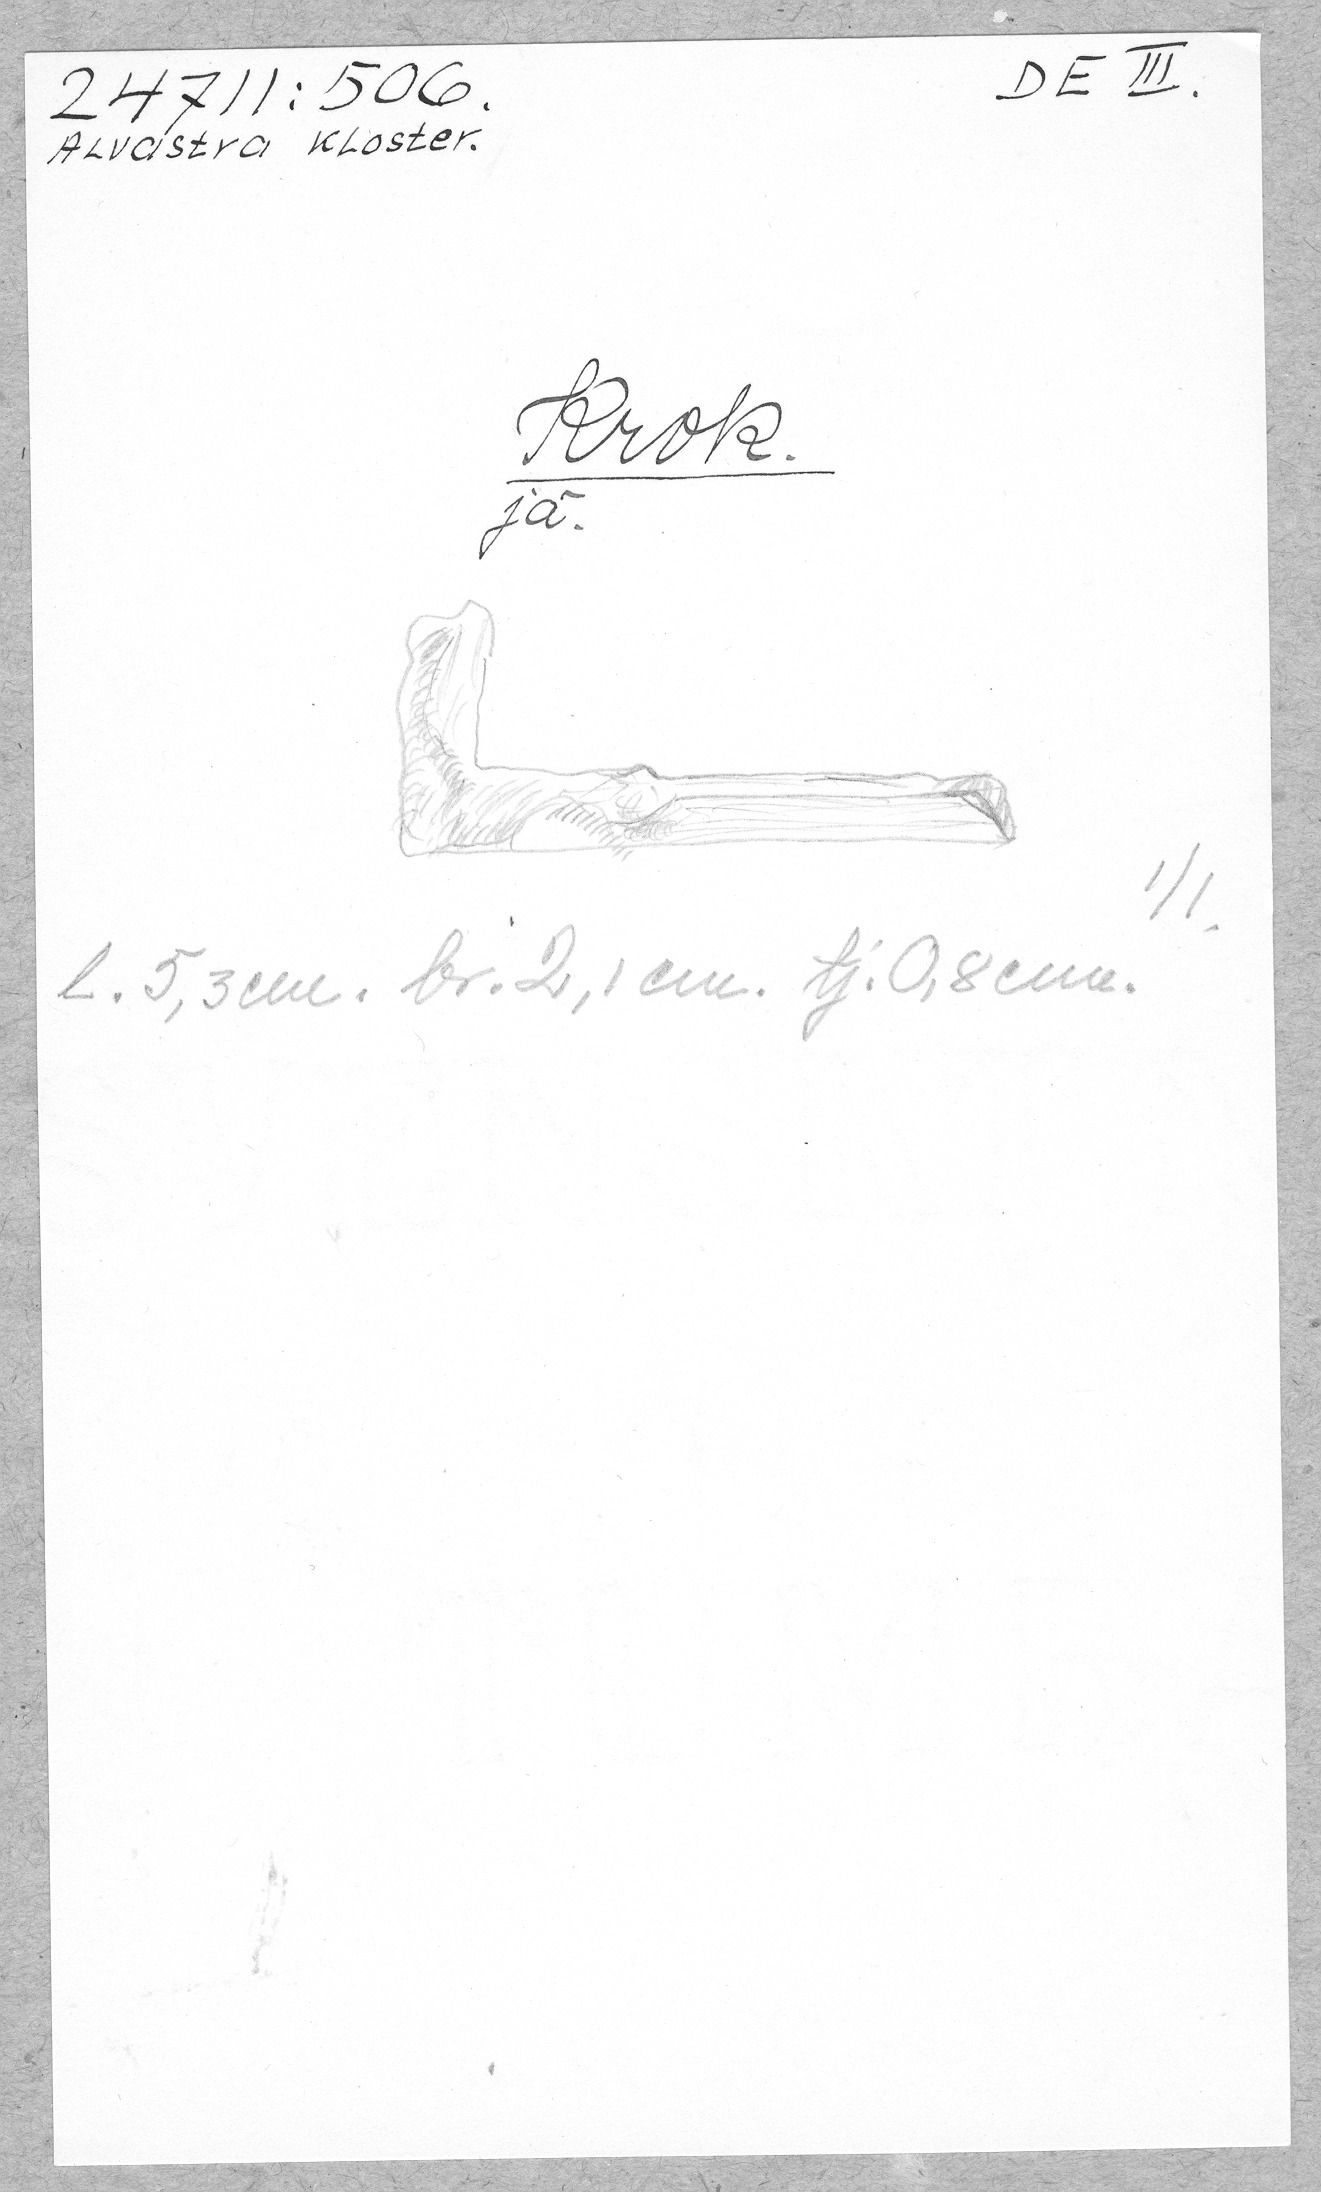 24711:506.
DE III.
Alvastra Kloster.
Krok.
jä.
1/1.
L. 5,3 cm. br. 2,1 cm. tj. 0,8 cm.